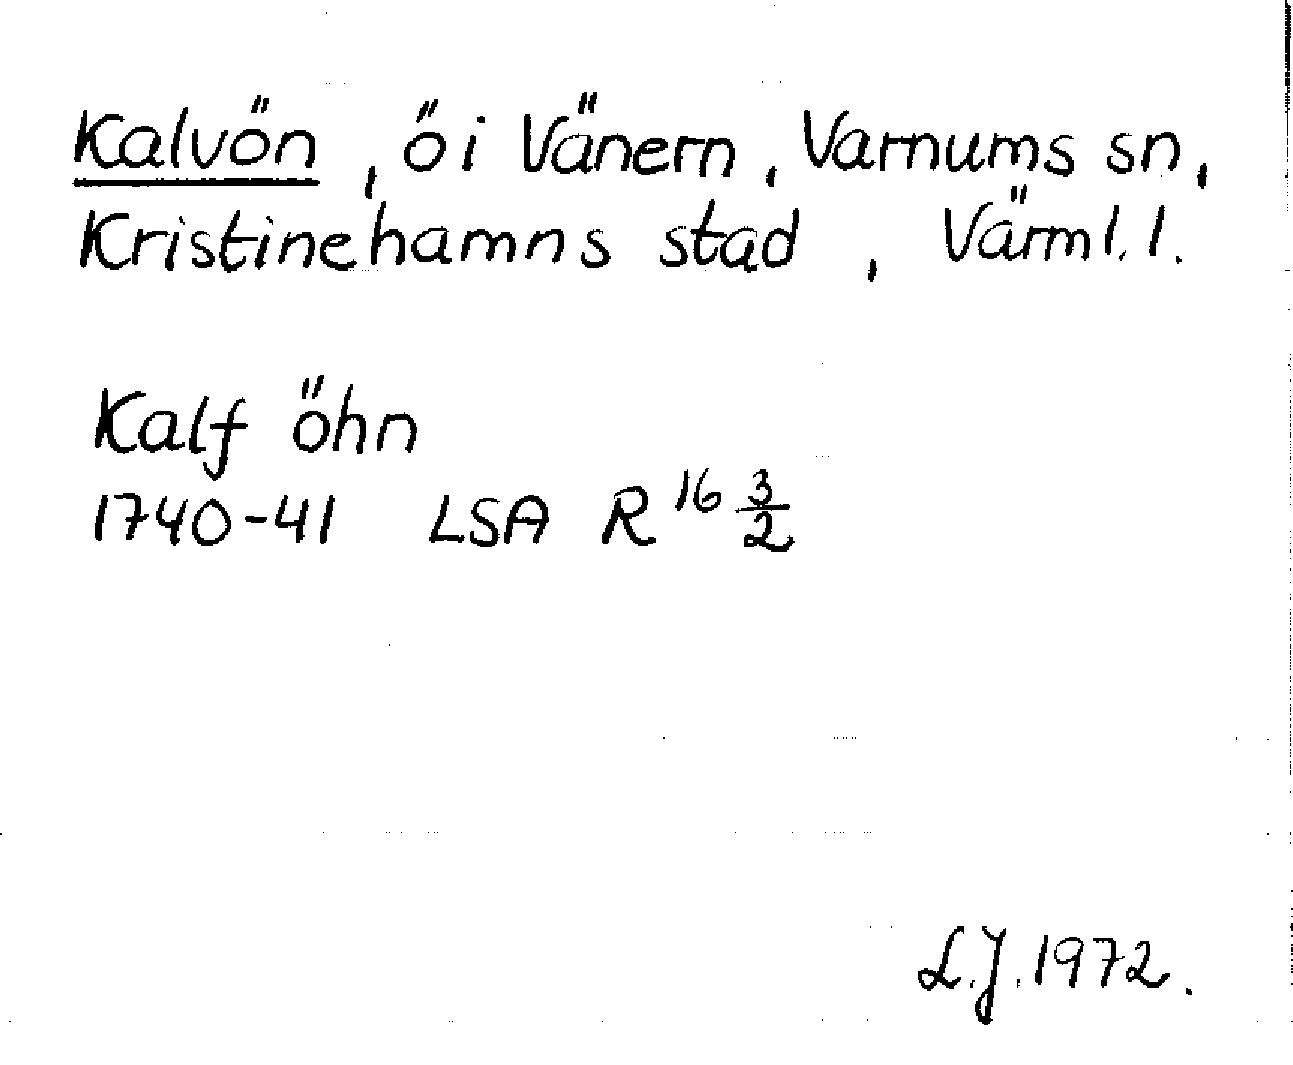 Kalvön, ö i Vänern, Varnums sn,
Kristinehamns stad, Värml. l.
Kalf öhn
1740-41 LSA R 16 3/2
L.J. 1972.